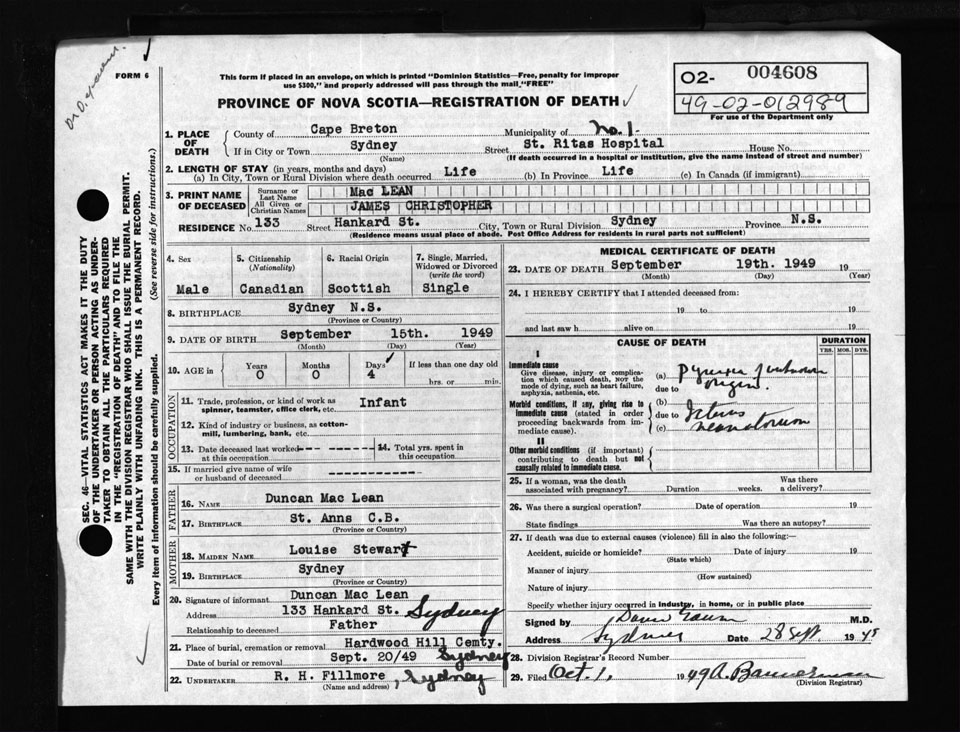 FORM 6
This form if placed in an envelope, on which is printed "Dominion Statistics—Free, penalty for improper
use $300," and properly addressed will pass through the mail "FREE"
PROVINCE OF NOVA SCOTIA—REGISTRATION OF DEATH
O2- 004608
49-02-012989
For use of the Department only
1. PLACE OF DEATH
County of Cape Breton Municipality of No. 1.
If in City or Town Sydney Street St. Ritas Hospital House No.
(Name) (If death occurred in a hospital or institution, give the name instead of street and number)
2. LENGTH OF STAY (in years, months and days)
(a) In City, Town or Rural Division where death occurred Life (b) In Province Life (c) In Canada (if immigrant)
3. PRINT NAME OF DECEASED
Surname or Last Name Mac LEAN
All Given or Christian Names JAMES CHRISTOPHER
RESIDENCE No. 133 Street Hankard St. City, Town or Rural Division Sydney Province N.S.
(Residence means usual place of abode. Post Office Address for residents in rural parts not sufficient)
4. Sex Male
5. Citizenship (Nationality) Canadian
6. Racial Origin Scottish
7. Single, Married, Widowed or Divorced (write the word) Single
8. BIRTHPLACE Sydney N.S.
(Province or Country)
9. DATE OF BIRTH September 15th. 1949
(Month) (Day) (Year)
10. AGE in Years 0 Months 0 Days 4 If less than one day old
hrs. or min.
OCCUPATION
11. Trade, profession, or kind of work as spinner, teamster, office clerk, etc. Infant
12. Kind of industry or business, as cotton-mill, lumbering, bank, etc.
13. Date deceased last worked at this occupation
14. Total yrs. spent in this occupation
15. If married give name of wife or husband of deceased
FATHER
16. NAME Duncan Mac Lean
17. BIRTHPLACE St. Anns C.B.
(Province or Country)
MOTHER
18. MAIDEN NAME Louise Stewart
19. BIRTHPLACE Sydney
(Province or Country)
20. Signature of informant Duncan Mac Lean
Address 133 Hankard St. Sydney
Relationship to deceased Father
21. Place of burial, cremation or removal Hardwood Hill Cemty.
Date of burial or removal Sept. 20/49 Sydney
22. UNDERTAKER R. H. Fillmore, Sydney
MEDICAL CERTIFICATE OF DEATH
23. DATE OF DEATH September 19th. 1949 19
(Month) (Day) (Year)
24. I HEREBY CERTIFY that I attended deceased from:
19 to 19
and last saw h alive on 19
CAUSE OF DEATH
DURATION
YRS. MOS. DYS.
I
Immediate cause
Give disease, injury or complication which caused death, NOT the mode of dying, such as heart failure, asphyxia, asthenia, etc.
(a) Pyrexia unknown
due to origin.
Morbid conditions, if any, giving rise to immediate cause (stated in order proceeding backwards from immediate cause).
(b) Icterus
due to
(c) neonatorum
II
Other morbid conditions (if important) contributing to death but not causally related to immediate cause.
25. If a woman, was the death associated with pregnancy? Duration weeks. Was there a delivery?
26. Was there a surgical operation? Date of operation 19
State findings Was there an autopsy?
27. If death was due to external causes (violence) fill in also the following:—
Accident, suicide or homicide? Date of injury 19
(State which)
Manner of injury
(How sustained)
Nature of injury
Specify whether injury occurred in industry, in home, or in public place
Signed by M.D.
Address Sydney Date 28 Sept 1945
28. Division Registrar's Record Number
29. Filed Oct. 1. 1949 A. Bannerman
(Division Registrar)
SEC. 46—VITAL STATISTICS ACT MAKES IT THE DUTY
OF THE UNDERTAKER OR PERSON ACTING AS UNDER-
TAKER TO OBTAIN ALL THE PARTICULARS REQUIRED
IN THE "REGISTRATION OF DEATH" AND TO FILE THE
SAME WITH THE DIVISION REGISTRAR WHO SHALL ISSUE THE BURIAL PERMIT.
WRITE PLAINLY WITH UNFADING INK. THIS IS A PERMANENT RECORD.
Every item of information should be carefully supplied. (See reverse side for instructions.)